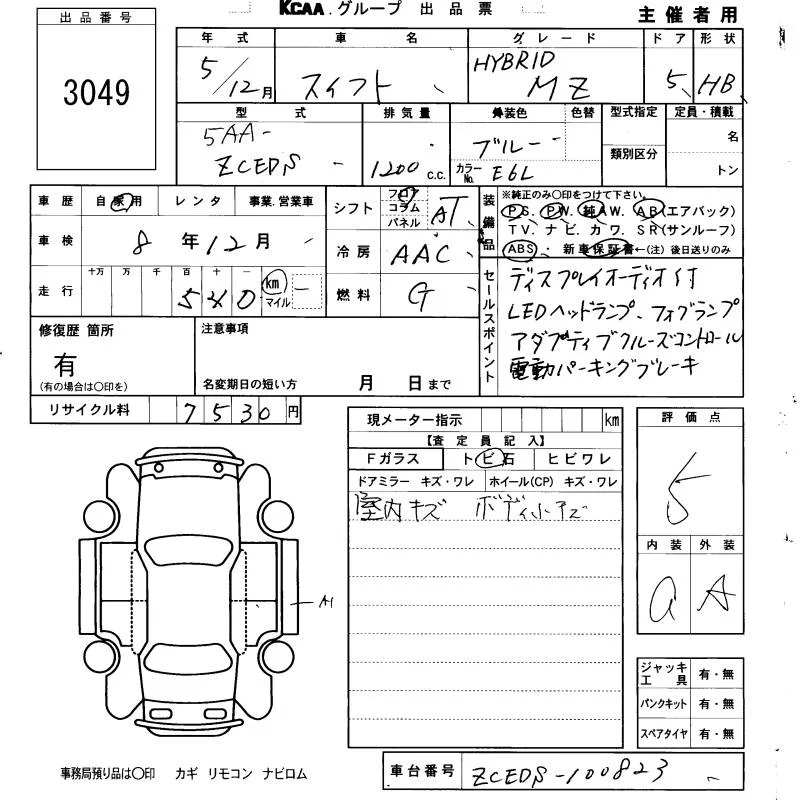 KCAA.グループ 出品票
主催者用
出品番号
3049
年式 車名 グレード ドア 形状
5/12月 スイフト HYBRID MZ 5 HB
型式 排気量 外装色 色替 型式指定 定員・積載
5AA-ZCEDS 1200 C.C. ブルー カラーNo. E6L 類別区分 名 トン
車歴 自家用 レンタ 事業.営業車
車検 8年12月
走行 十万 万 千 百 十 一
540 km マイル
シフト フロア コラム パネル AT
冷房 AAC
燃料 G
装備品 ※純正のみ〇印をつけて下さい。
PS. PW. 純AW. AB(エアバック)
TV. ナビ. カワ. SR(サンルーフ)
ABS・新車保証書←(注)後日送りのみ
セールスポイント
ディスプレイオーディオ付
LEDヘッドランプ、フォグランプ
アダプティブクルーズコントロール
電動パーキングブレーキ
修復歴 箇所
有
(有の場合は〇印を)
注意事項
名変期日の短い方 月 日まで
リサイクル料 7530円
現メーター指示 km
【査定員記入】
Fガラス トビ石 ヒビワレ
ドアミラー キズ・ワレ ホイール(CP) キズ・ワレ
室内キズ ボディ小キズ
評価点
5
内装 外装
a A
A1
ジャッキ工具 有・無
パンクキット 有・無
スペアタイヤ 有・無
事務局預り品は〇印 カギ リモコン ナビロム
車台番号 ZCEDS-100823